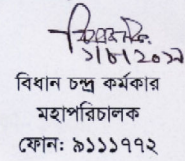 বিধান চন্দ্র কর্মকার
মহাপরিচালক
ফোন: ৯১১১৭৭২